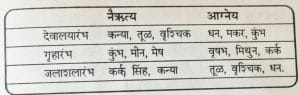 नैऋत्य आग्नेय
देवालयारंभ कन्या, तूळ, वृश्चिक धन, मकर, कुंभ
गृहारंभ कुंभ, मीन, मेष वृषभ, मिथुन, कर्क
जलाशलारंभ कर्क सिंह, कन्या तूळ, वृश्चिक, धन.